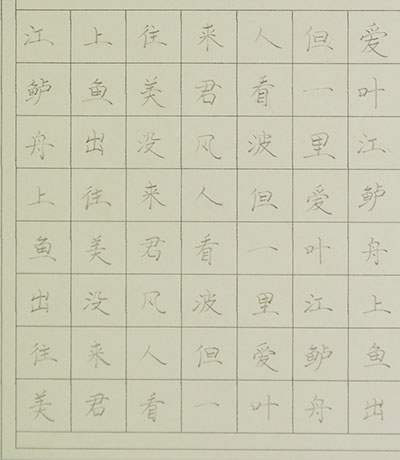 江上往来人但爱
鲈鱼美君看一叶
舟出没风波里江
上往来人但爱鲈
鱼美君看一叶舟
出没风波里江上
往来人但爱鲈鱼
美君看一叶舟出